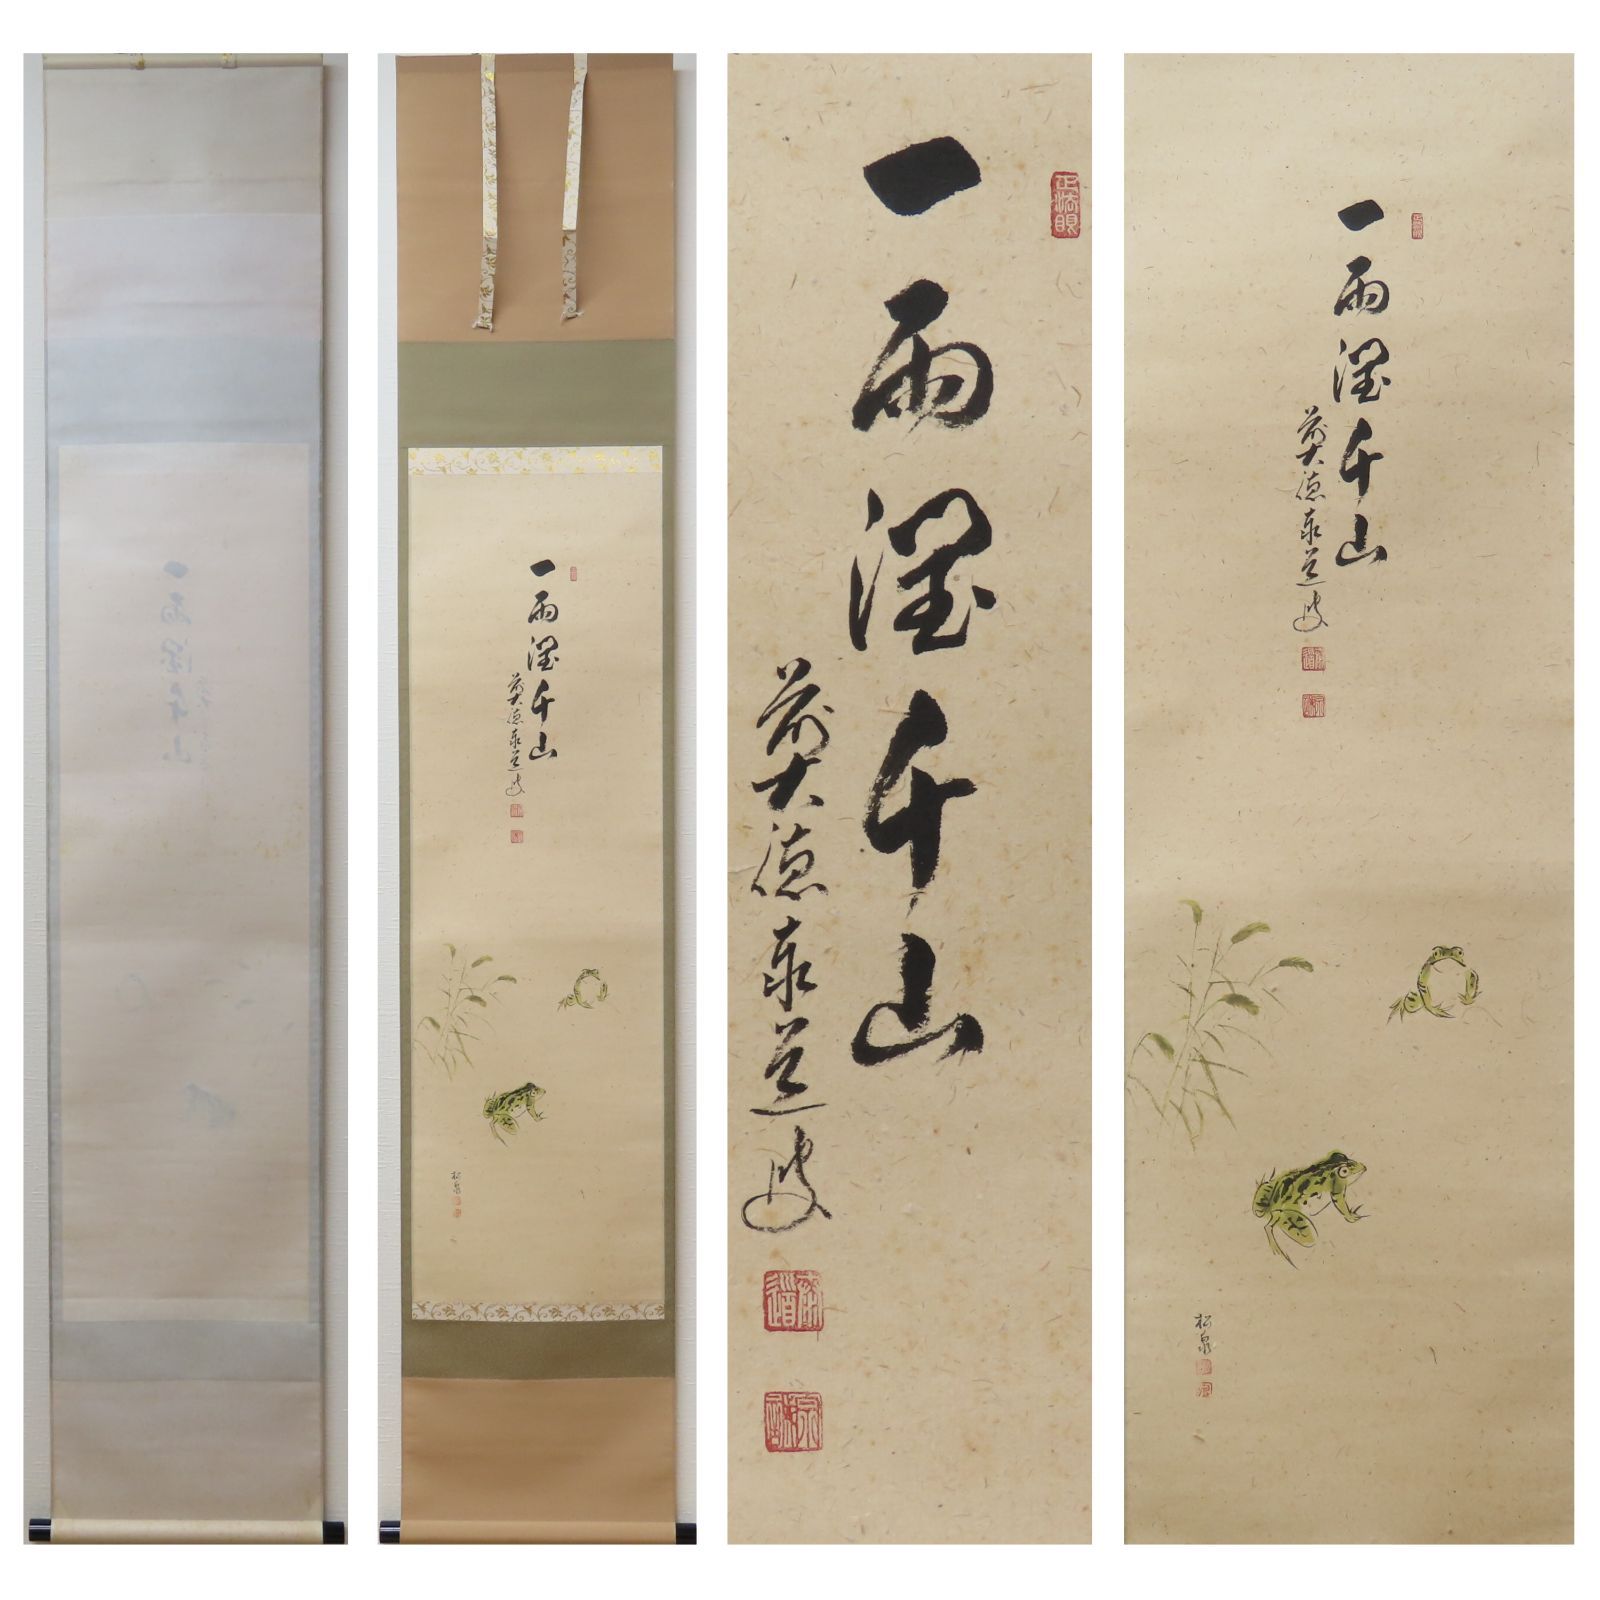 一雨潤千山
前大徳泰道
松泉
正法眼
一雨潤千山
前大徳泰道
泰道
一雨潤千山
前大徳泰道
松泉